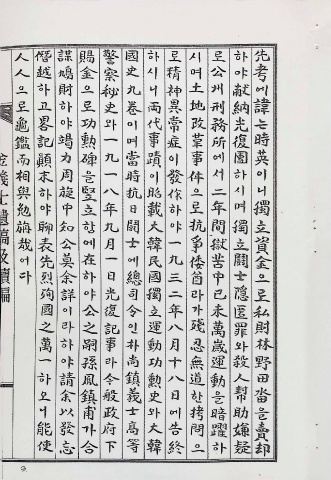 先考에諱는時英이니獨立資金으로私財林野田畓을賣却
하야獻納光復團하시며獨立鬪士隱匿罪와殺人幇助嫌疑
로公州刑務所에서二年間獄苦中己未萬歲運動을暗躍하
시며土地改革事件으로抗爭倭酋라가殘忍無道한拷問으
로精神異常症이發作하야一九三二年八月十八日에告終
하시니兩代事蹟이昭載大韓民國獨立運動功勲史와大韓
國史九卷이며當時抗日鬪士에總司令인朴尙鎭義士高等
警察秘史와一九一八年九月一日光復記事라今般政府下
賜金으로功勲碑를竪立함에在하야公之嗣孫鳳鎭甫가合
謀鳩財하야竭力周旋中知公莫余詳이라하야請余以發忘
僭越하고畧記顚本하야聊表先烈殉國之萬一하오니能使
人人으로龜鑑而相與勉旃哉어다
義士遺稿及續編
9